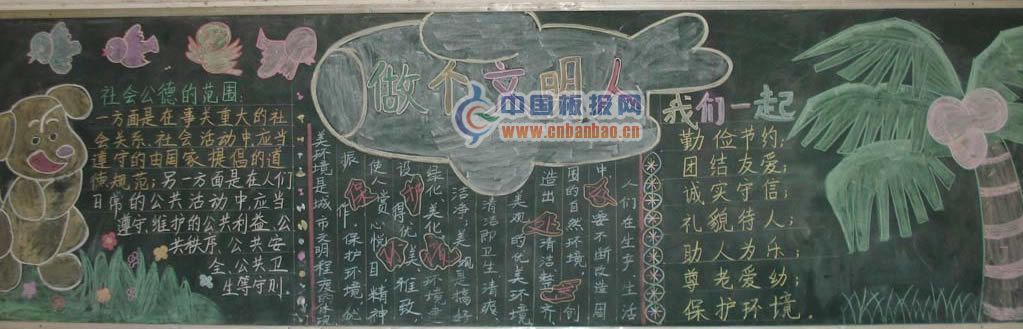 做个文明人
中国板报网
www.cnbanbao.cn
社会公德的范围:
一方面是在事关重大的社
会关系、社会活动中,应当
遵守的由国家提倡的道
德规范;另一方面是在人们
日常的公共活动中应当
遵守、维护的公共利益、公
共秩序、公共安
全、公共卫
生等守则
人们在生产、生活
中,要不断改造周
围的自然环境,创
造出清洁整齐、
美观的优美环境
清洁即卫生清爽
洁净,美观是搞好
绿化美化,环境
设得优美、雅致,
使人赏心悦目,精神
振作,保护环境的
关环境是城市文明程度的体现
我们一起
勤俭节约;
团结友爱;
诚实守信;
礼貌待人;
助人为乐;
尊老爱幼;
保护环境.